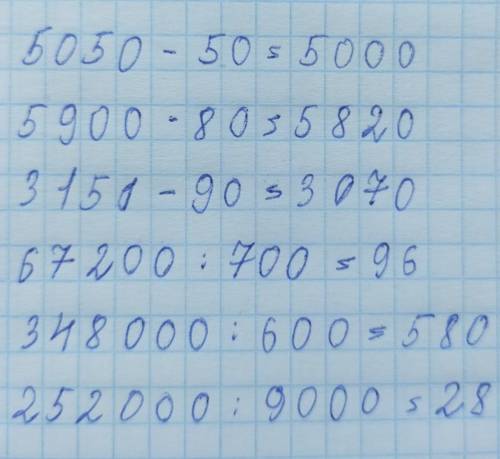 5050 - 50 = 5000
5900 - 80 = 5820
3151 - 90 = 3070
67200 : 700 = 96
348000 : 600 = 580
252000 : 9000 = 28